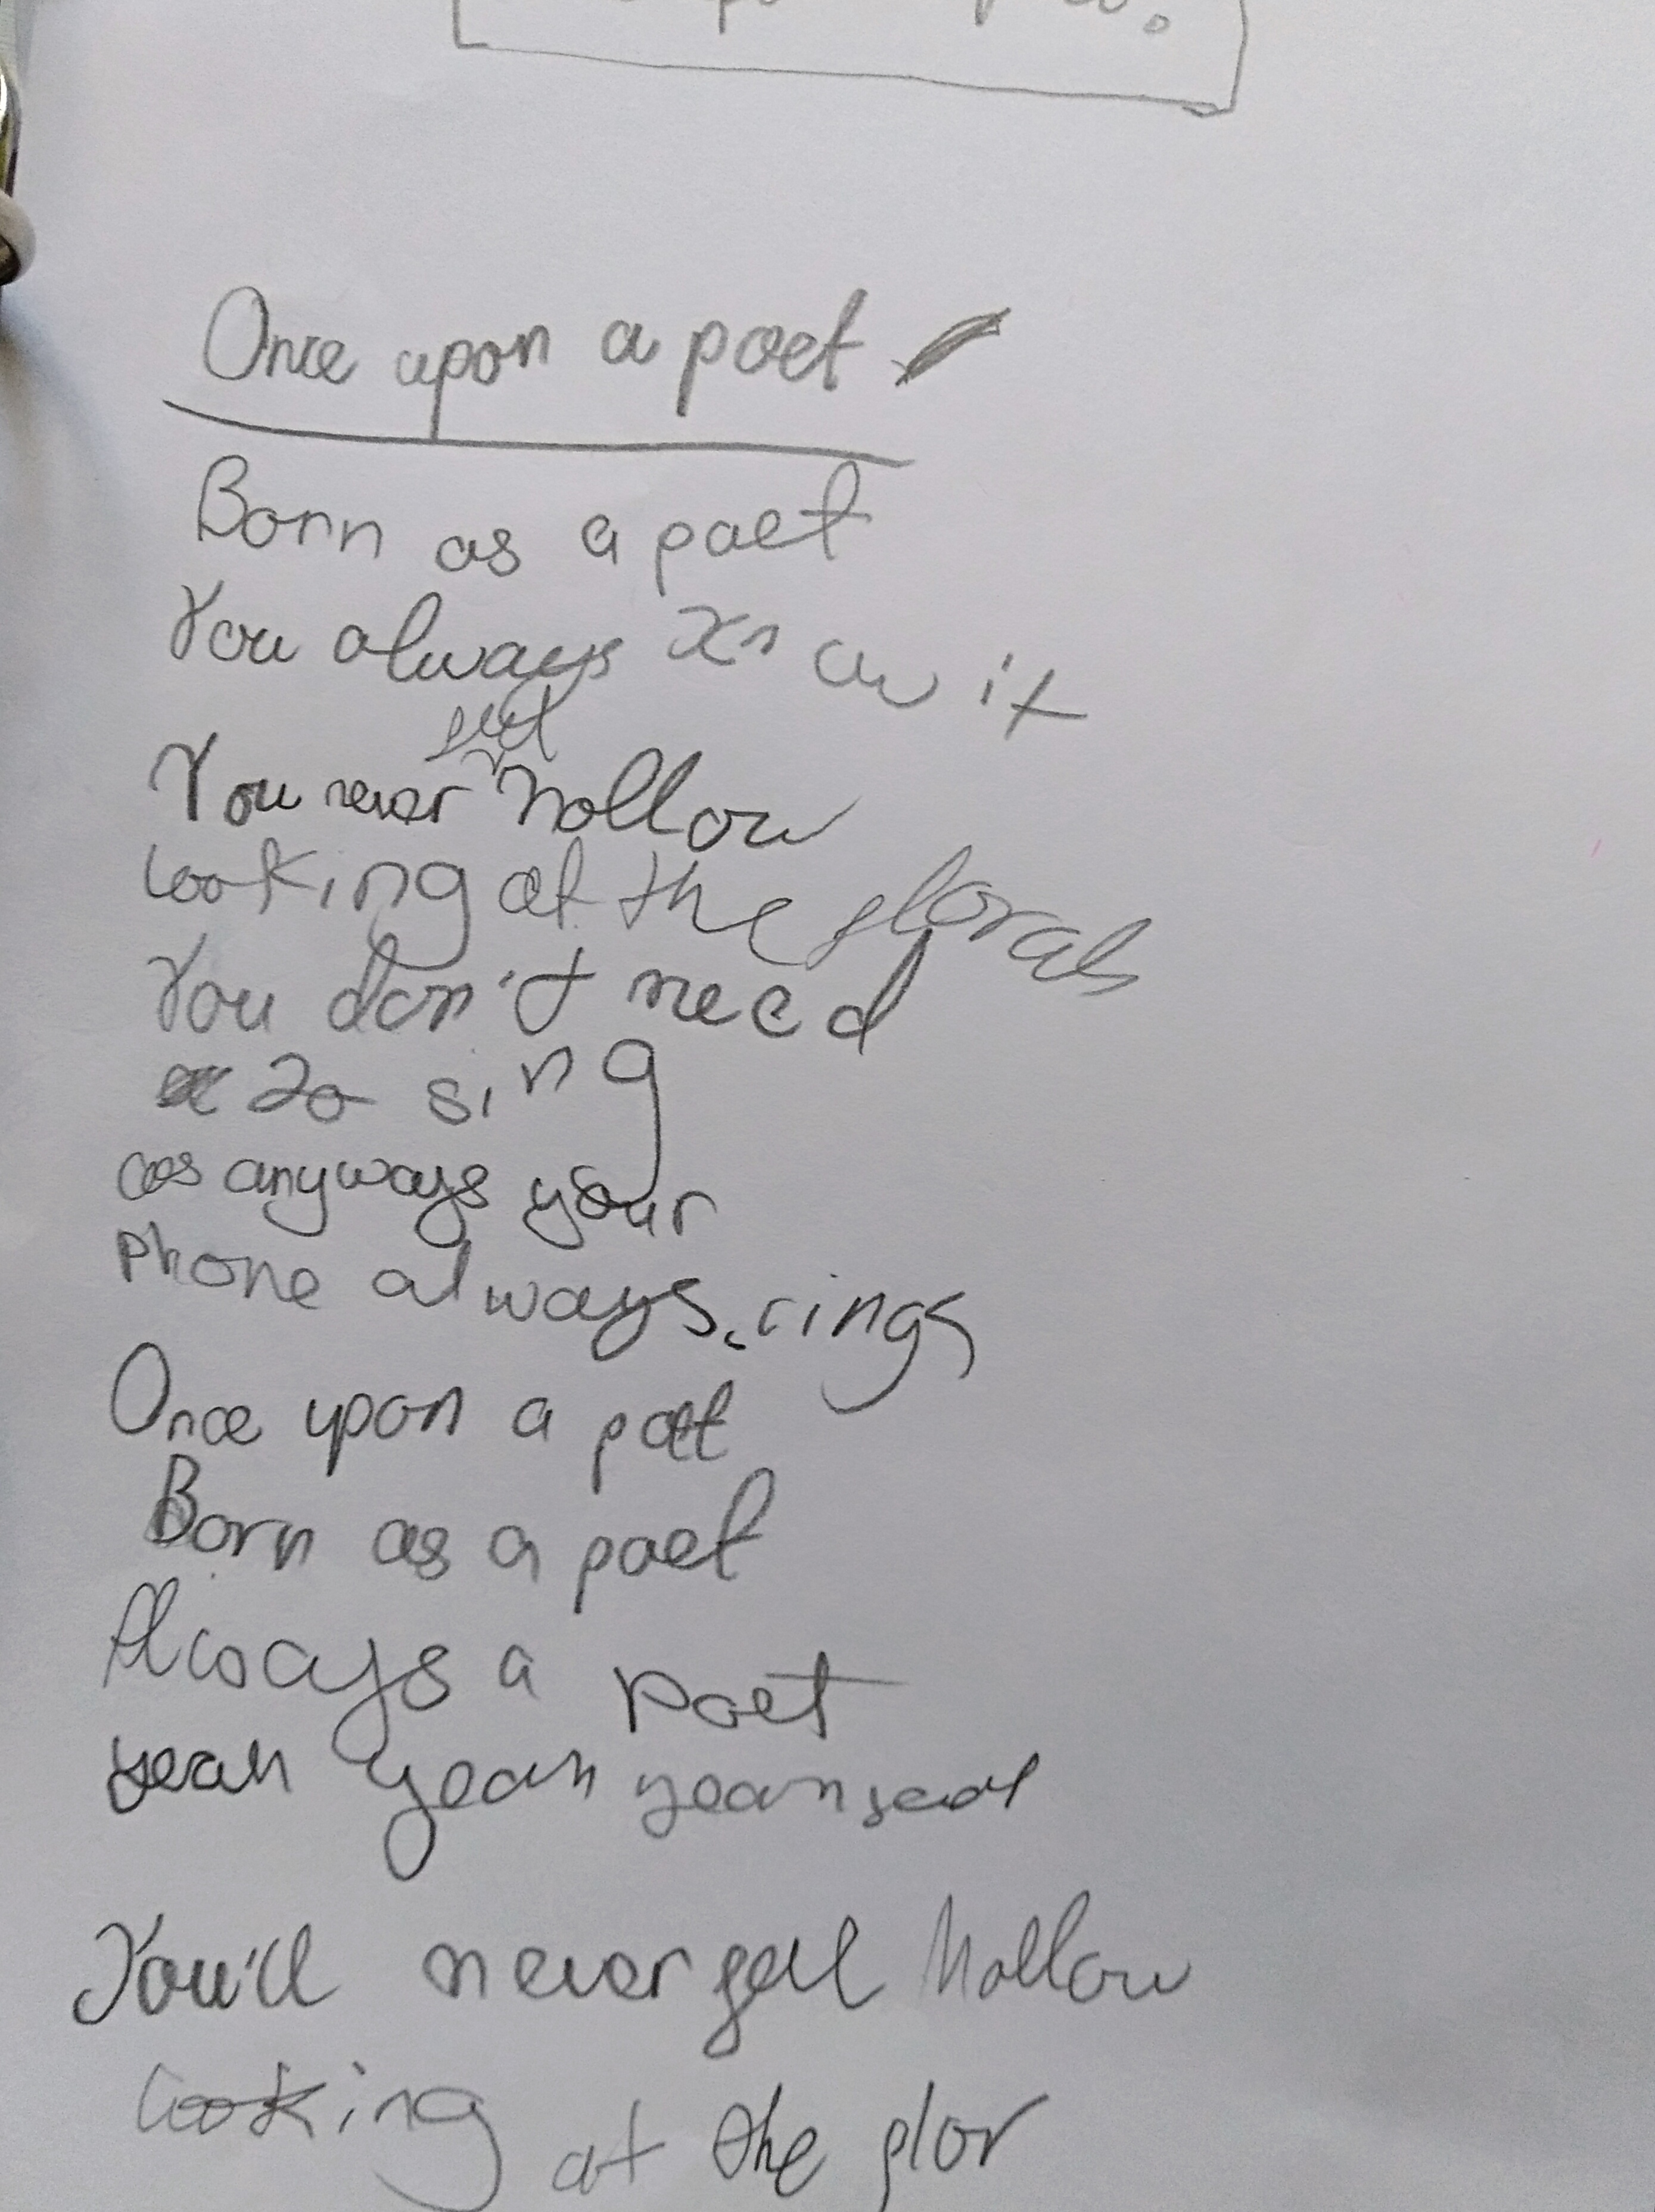 Once upon a poet
Born as a poet
You always know it
You never feel hollow
looking at the florals
You don't need
to sing
cos anyways your
phone always rings
Once upon a poet
Born as a poet
Always a poet
yeah yeah yeah yeah
You'll never feel hollow
looking at the flor